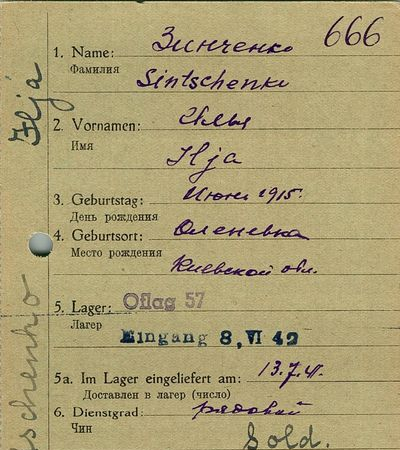 666
1. Name: Зинченко
Фамилия
Sintschenko
2. Vornamen: Илья
Имя
Ilja
3. Geburtstag: Июнь 1915.
День рождения
4. Geburtsort: Оленевка
Место рождения
Киевской обл.
5. Lager: Oflag 57
Лагер
Eingang 8, VI 42
5a. Im Lager eingeliefert am: 13.7.41.
Доставлен в лагер (число)
6. Dienstgrad: рядовой
Чин
Sold.
Ilja
schenko